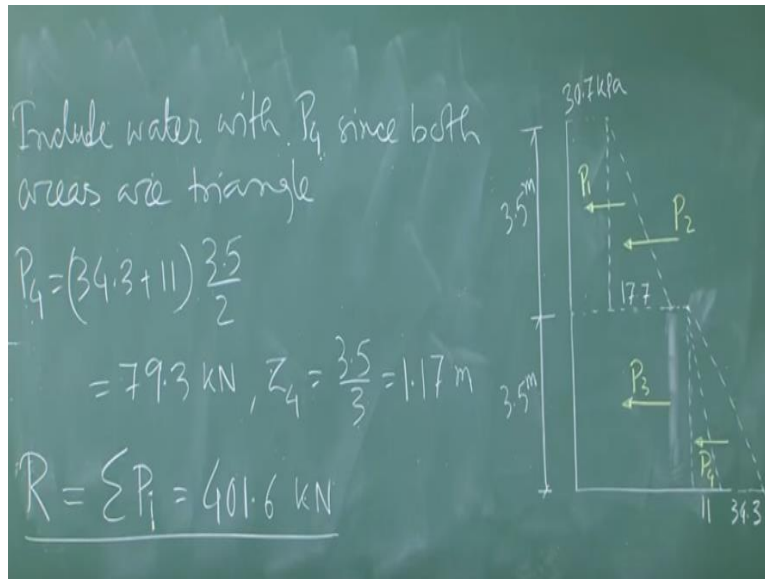 Include water with P₄ since both
areas are triangle
P₄ = (34.3 + 11) 3.5/2
= 79.3 KN, Z₄ = 3.5/3 = 1.17 m
R = ΣPᵢ = 401.6 KN
30.7 kPa
3.5 m
P₁
P₂
17.7
3.5 m
P₃
P₄
11 34.3